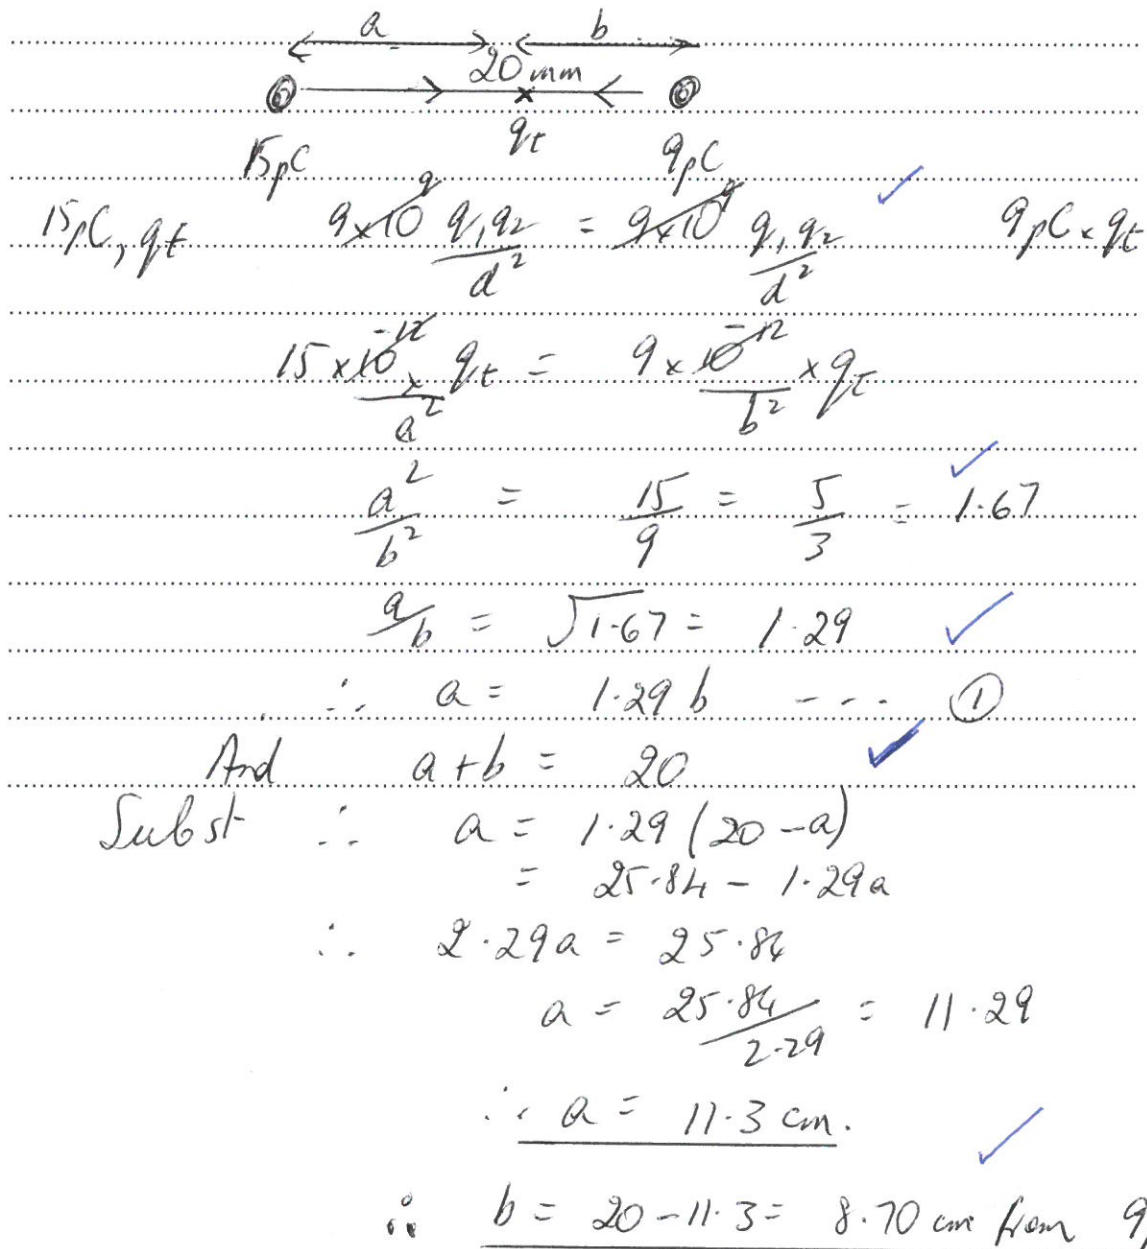 a b
20 mm
q_t
15pC 9pC
15pC, q_t 9×10⁹ q₁q₂/d² = 9×10⁹ q₁q₂/d² 9pC × q_t
15 × 10⁻¹² × q_t / a² = 9 × 10⁻¹² × q_t / b²
a²/b² = 15/9 = 5/3 = 1.67
a/b = √1.67 = 1.29
∴ a = 1.29 b - - - ①
And a + b = 20
Subst ∴ a = 1.29 (20 - a)
= 25.84 - 1.29a
∴ 2.29a = 25.84
a = 25.84/2.29 = 11.29
∴ a = 11.3 cm.
∴ b = 20 - 11.3 = 8.70 cm from 9